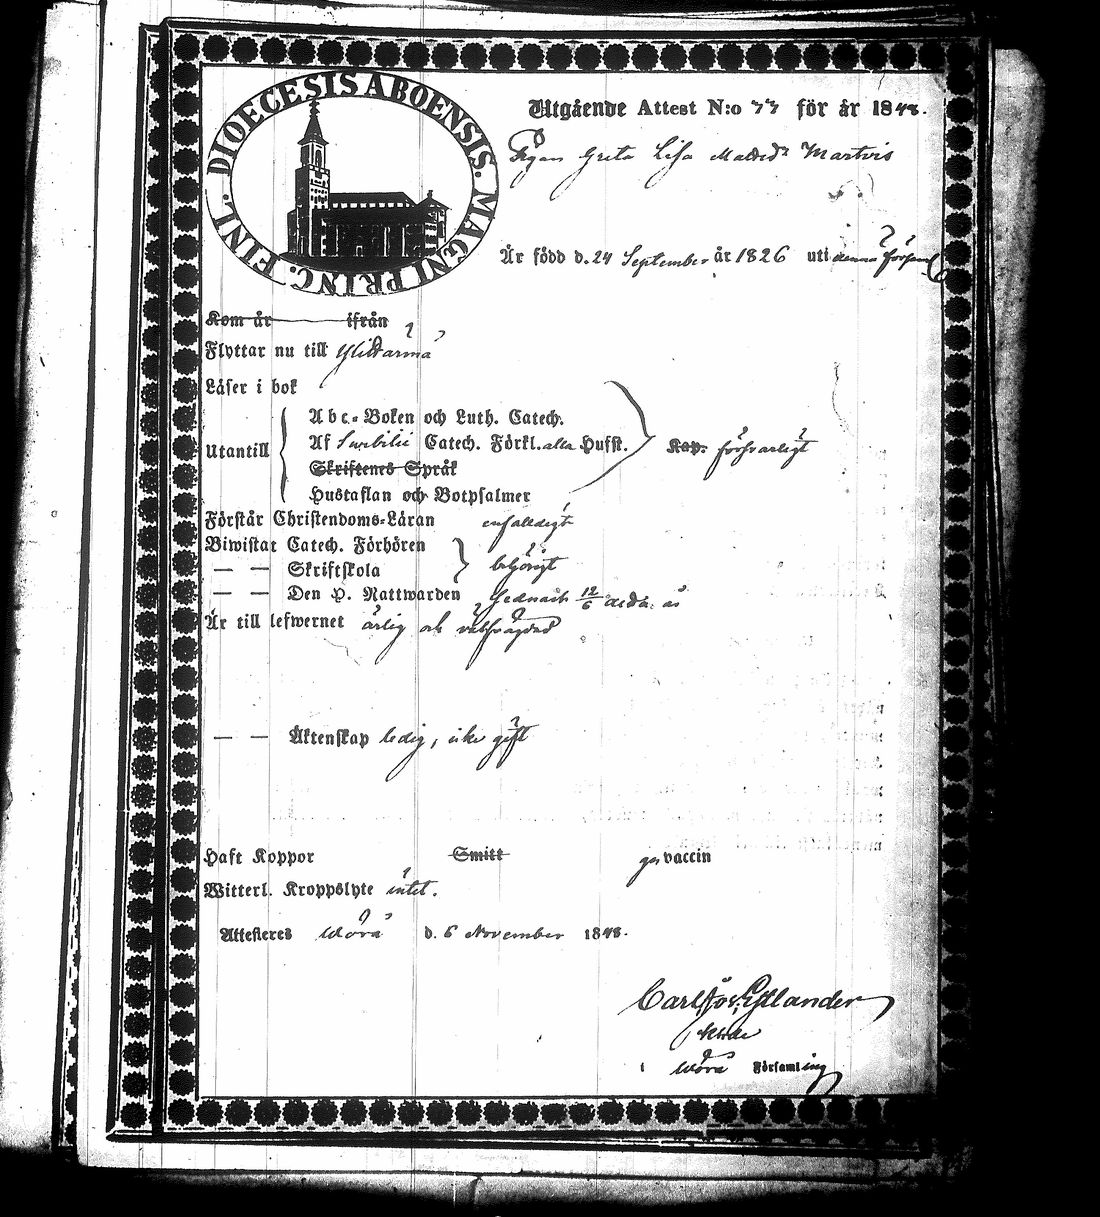 DIOECESIS ABOENSIS. MAGNI PRINC. FINL.
Utgående Attest N:o 77 för år 1848.
Pigan Greta Lisa Matted:r Martvis
Är född d. 24 September år 1826 uti denna församl
Kom år ifrån
Flyttar nu till Ylistarmä
Läser i bok
Utantill
Abc-Boken och Luth. Catech.
Af Svebilii Catech. Förkl. alla Hufst. Kap. försvarligt
Skriftenes Språk
Hustaflan och Botpsalmer
Förstår Christendoms-Läran enfaldigt
Biwistat Catech. Förhören
— — Skriftskola behörigt
— — Den H. Nattwarden sednast 12/6 detta år
Är till lefwernet ärlig och välfrägdad
— — Äktenskap ledig, icke gift
Haft Koppor Smitt gm vaccin
Witterl. Kroppslyte intet.
Attesteres Wörå d. 6 November 1848.
Carl
i Wörå Församling